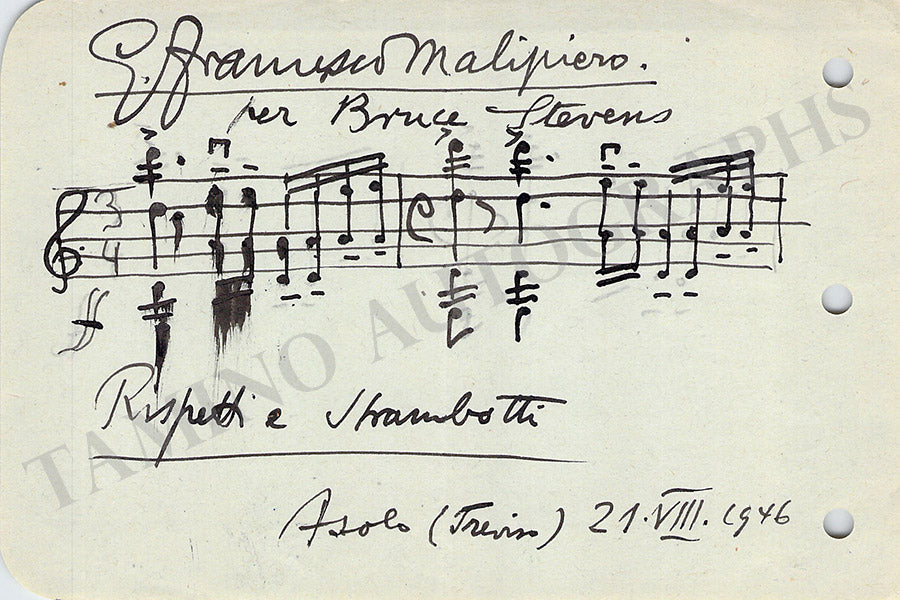 G. Francesco Malipiero.
per Bruce Stevens
3
4
ff
Rispetti e Strambotti
Asolo (Treviso) 21.VIII.1946
TAMINO AUTOGRAPHS